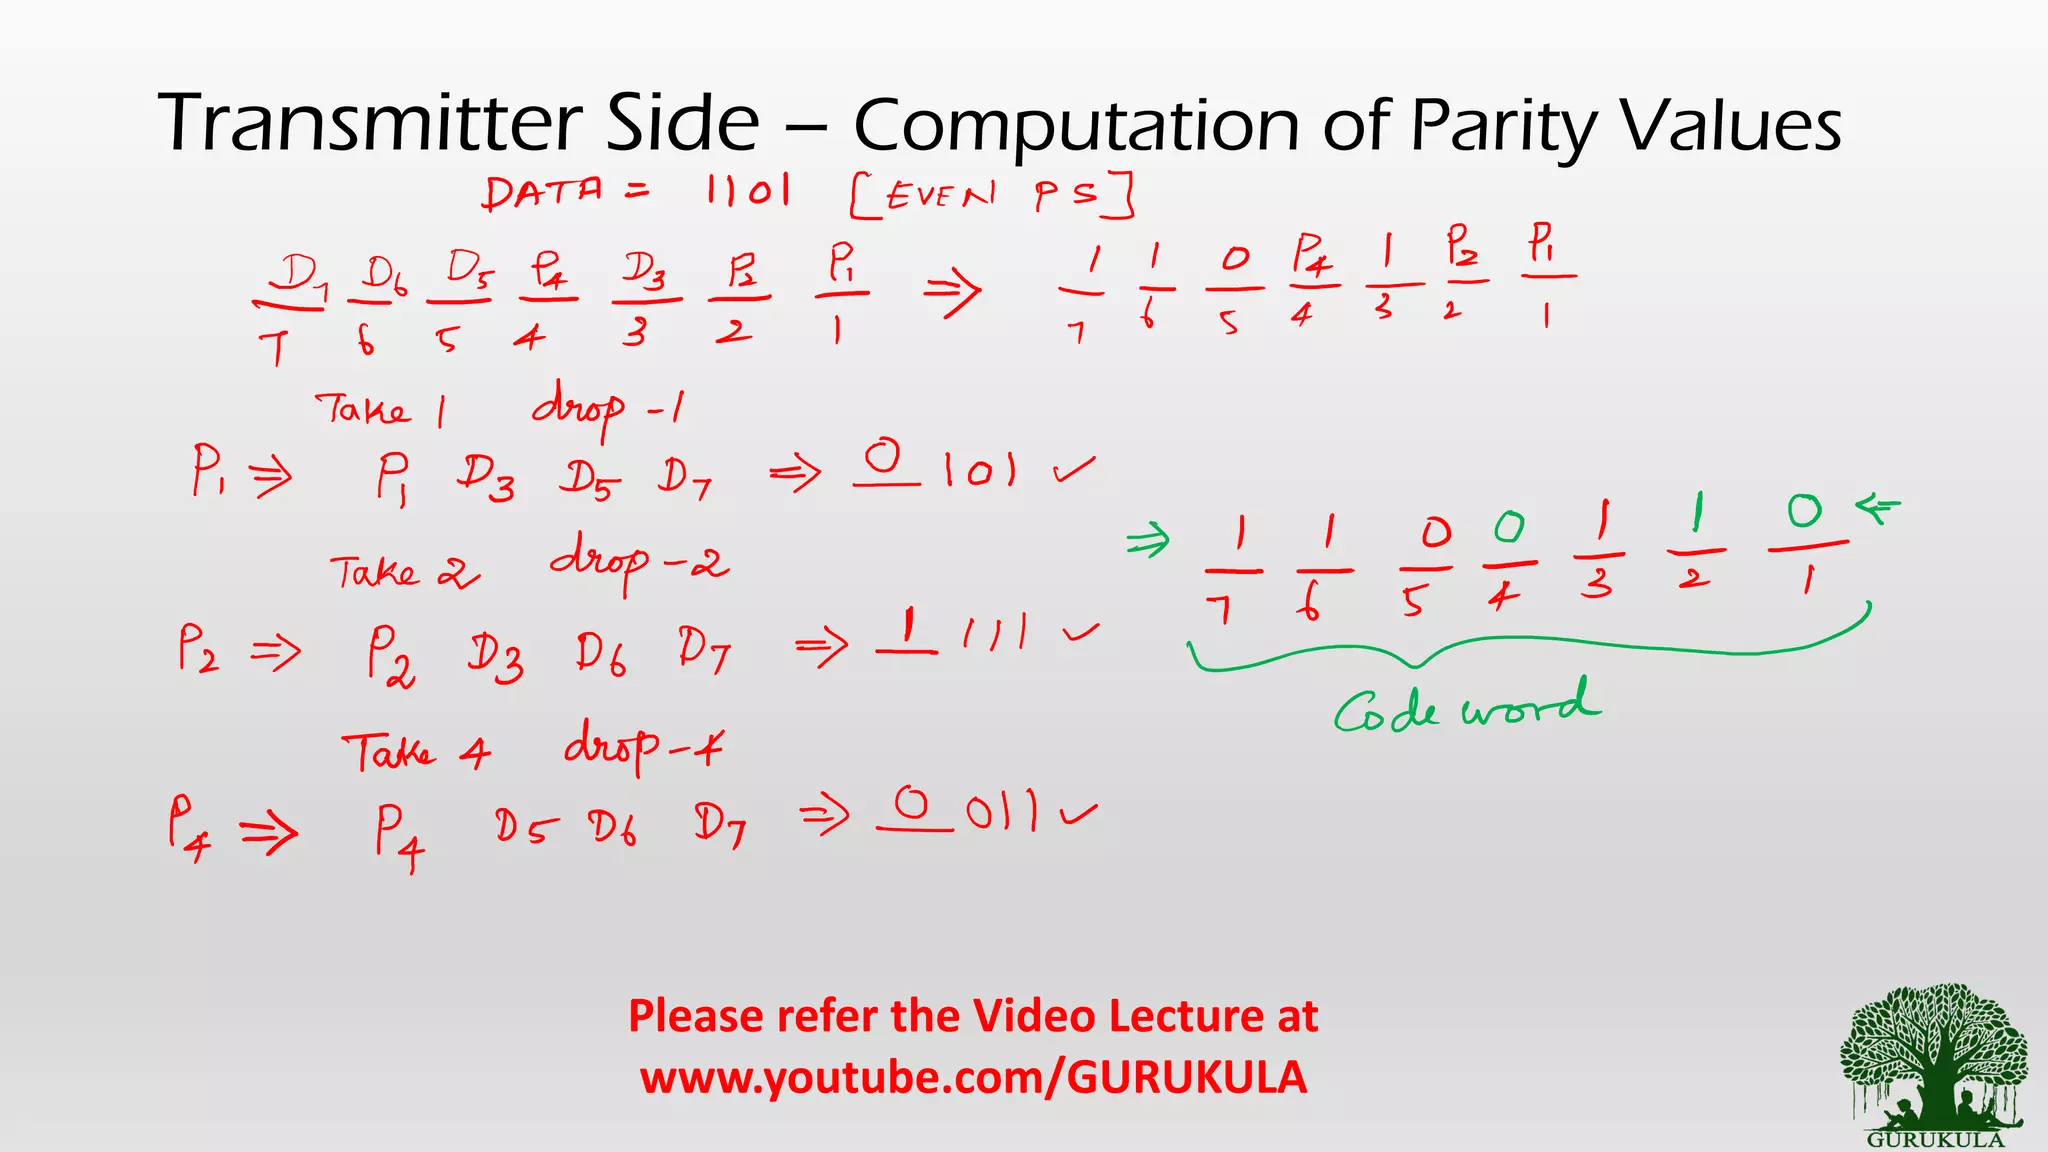 Transmitter Side – Computation of Parity Values
DATA = 1101 [EVEN PS]
D7 D6 D5 P4 D3 P2 P1 ⇒ 1 1 0 P4 1 P2 P1
7 6 5 4 3 2 1 7 6 5 4 3 2 1
Take 1 drop-1
P1 ⇒ P1 D3 D5 D7 ⇒ 0 101 ✓
Take 2 drop-2
P2 ⇒ P2 D3 D6 D7 ⇒ 1 111 ✓
Take 4 drop-4
P4 ⇒ P4 D5 D6 D7 ⇒ 0 011 ✓
⇒ 1 1 0 0 1 1 0 ⇐
7 6 5 4 3 2 1
Code word
Please refer the Video Lecture at
www.youtube.com/GURUKULA
GURUKULA